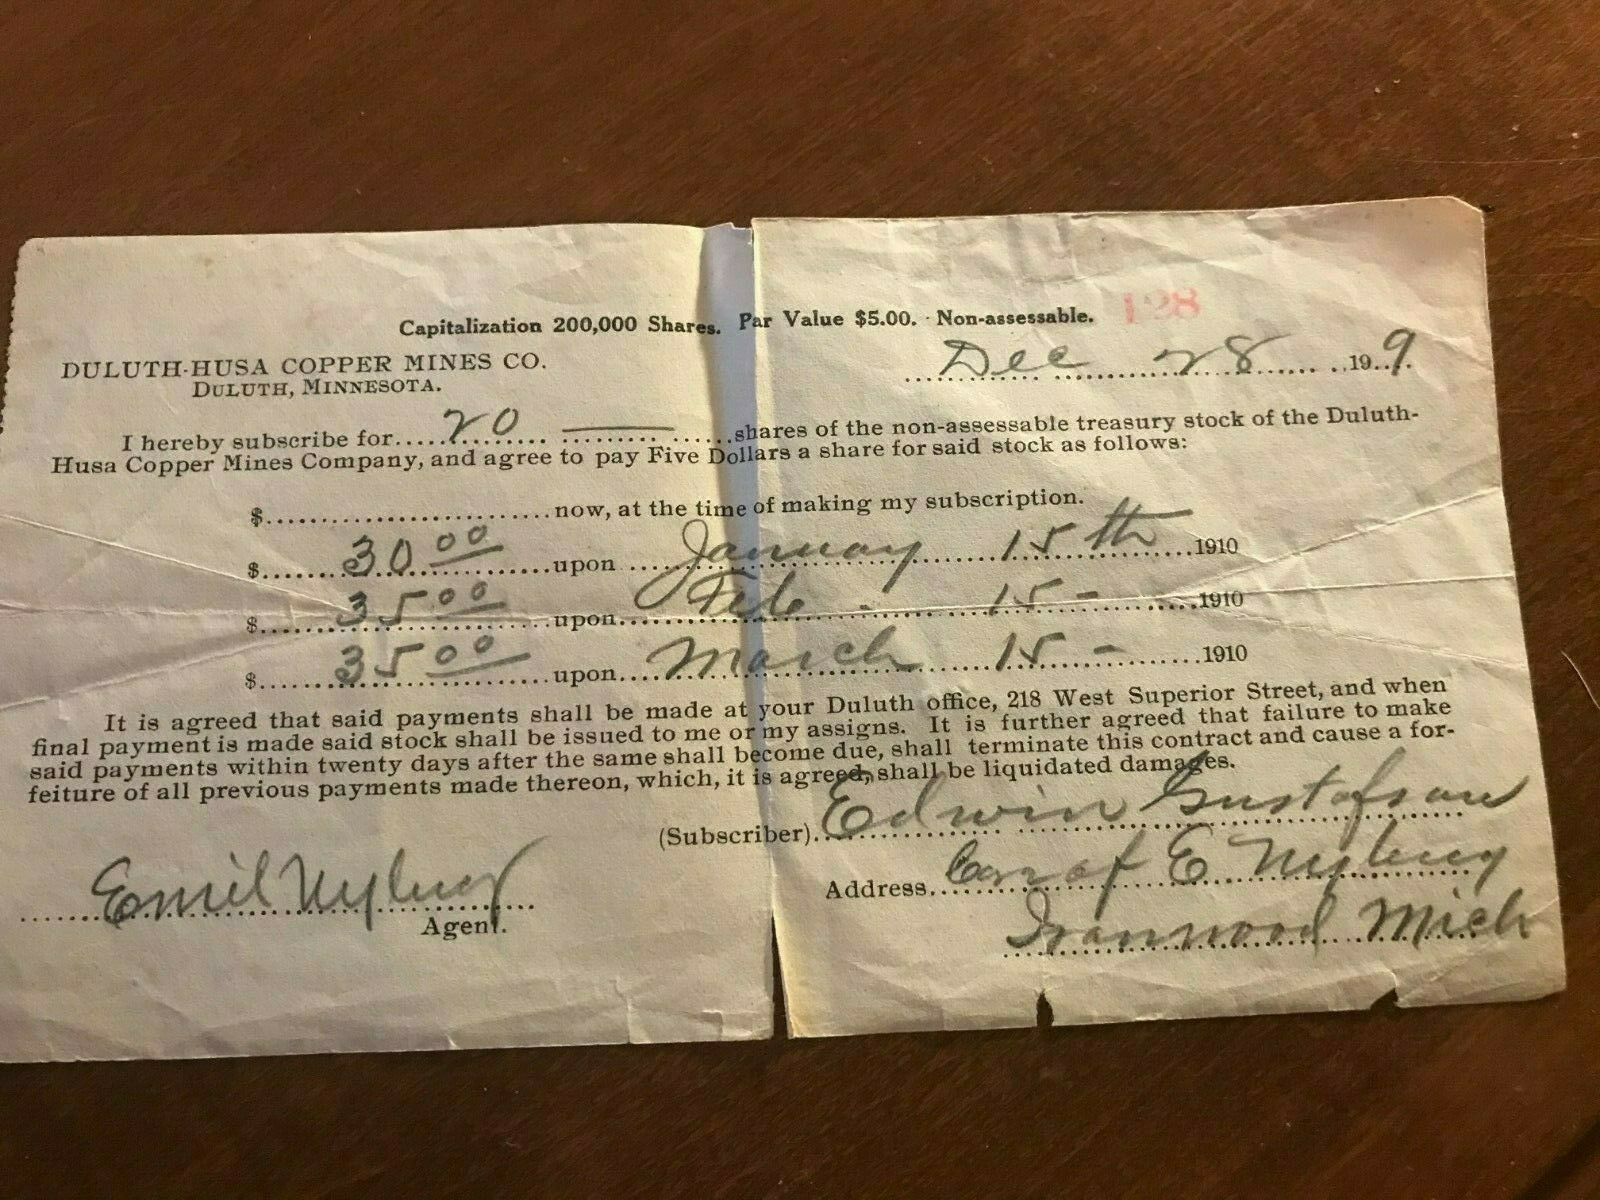 Capitalization 200,000 Shares. Par Value $5.00. Non-assessable. 128
DULUTH-HUSA COPPER MINES CO.
DULUTH, MINNESOTA.
Dec 28 19..9.
I hereby subscribe for 20 shares of the non-assessable treasury stock of the Duluth-
Husa Copper Mines Company, and agree to pay Five Dollars a share for said stock as follows:
$ now, at the time of making my subscription.
$ 30 00 upon January 15th 1910
$ 35 00 upon Feb. 15 - 1910
$ 35 00 upon March 15 - 1910
It is agreed that said payments shall be made at your Duluth office, 218 West Superior Street, and when
final payment is made said stock shall be issued to me or my assigns. It is further agreed that failure to make
said payments within twenty days after the same shall become due, shall terminate this contract and cause a for-
feiture of all previous payments made thereon, which, it is agreed, shall be liquidated damages.
(Subscriber) Edwin Gustafson
Address E Nyberg
Ironwood Mich
Emil Nyberg
Agent.